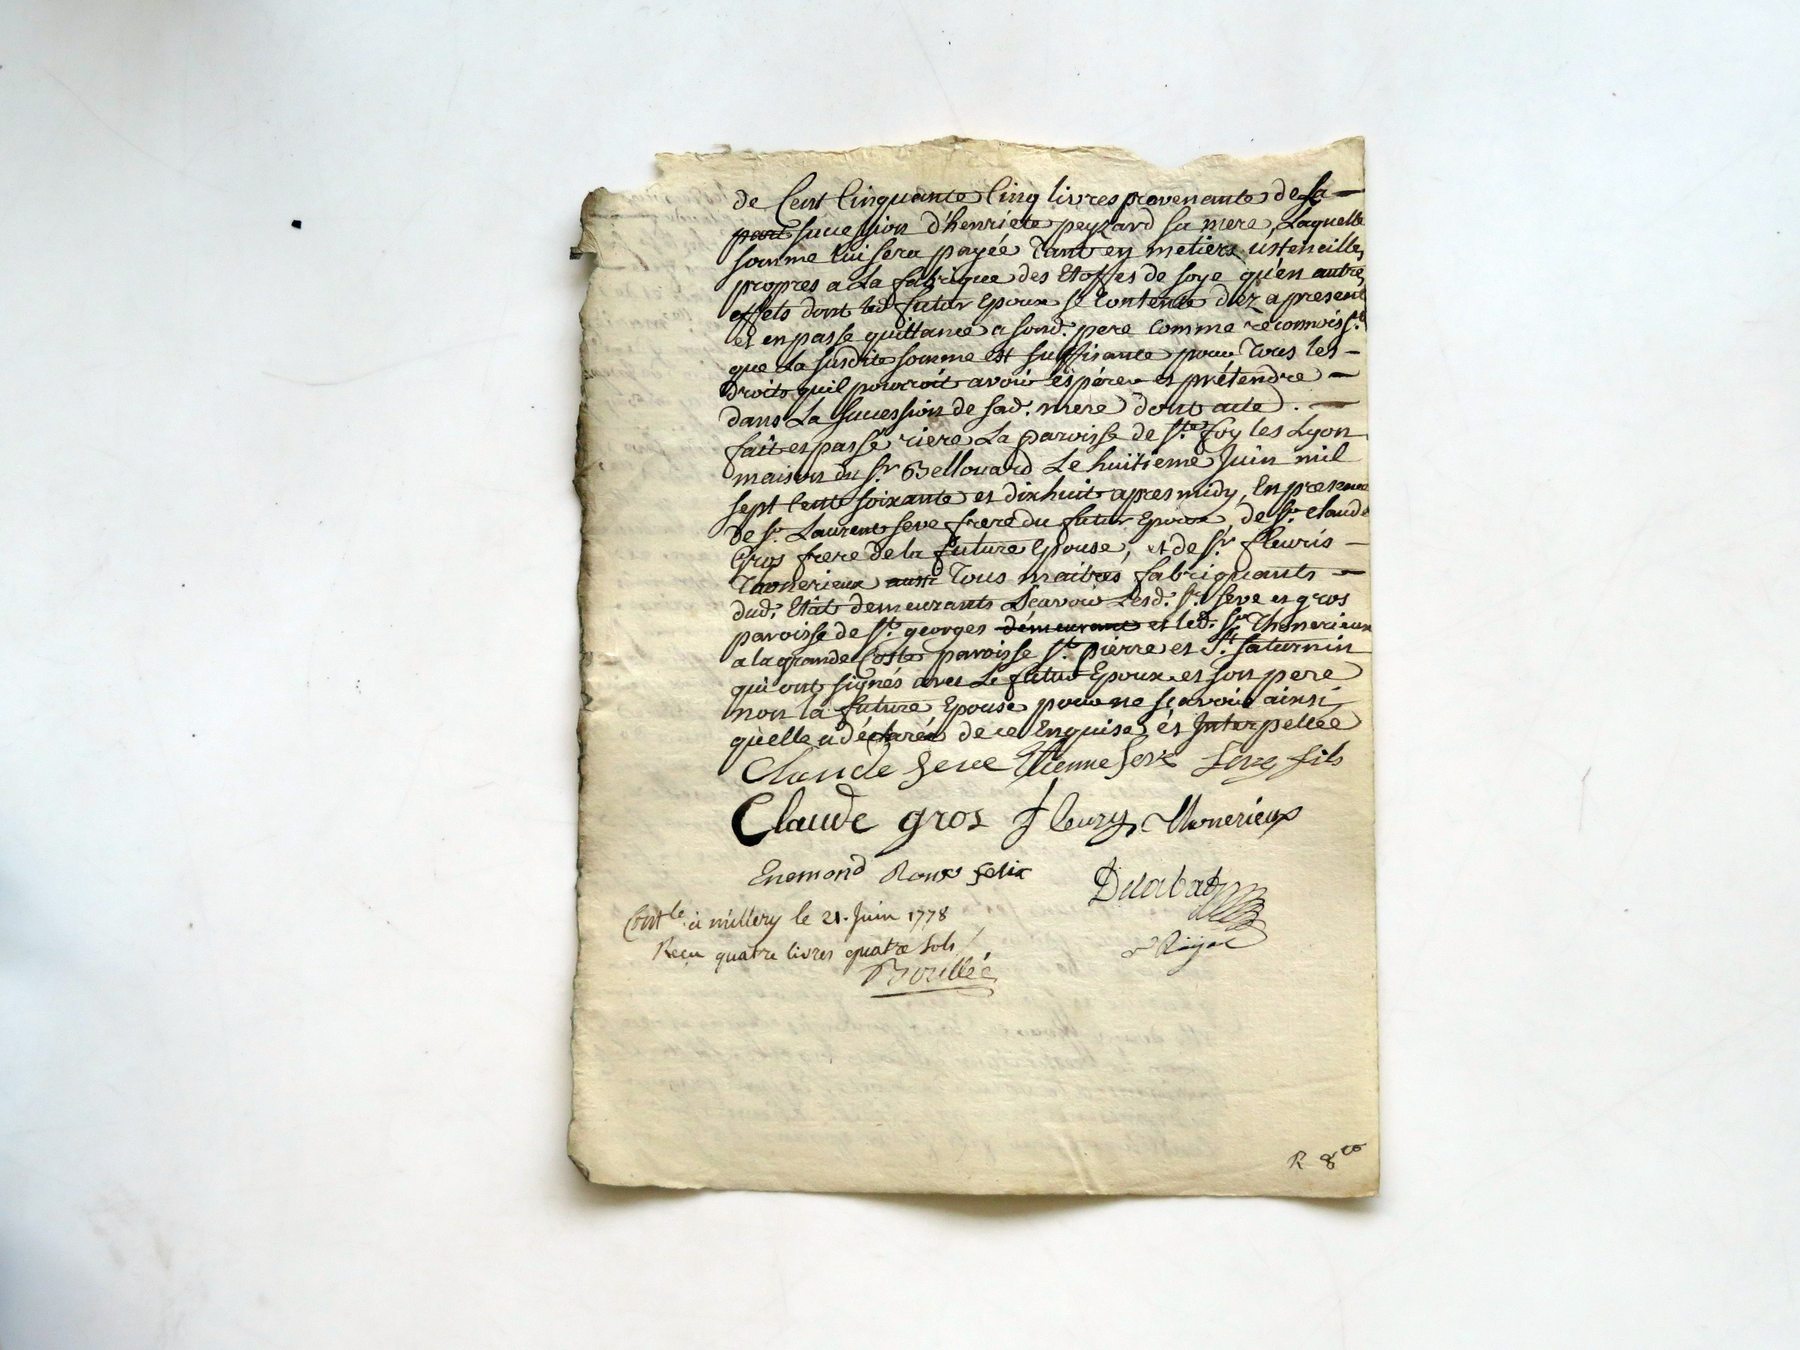 de Cent Cinquante Cinq livres provenante de la
part succession d'henriete peyzard sa mere, Laquelle
somme lui sera payée Tant en metiers ustencilles
propres a La fabrique des Etoffes de soye qu'en autres
effets dont led. futur Epoux se Contente dez a present
et en passe quittance a sond. pere Comme reconnoiss.t
que La susdite somme est suffisante pour Tous les
Droits quil pourroit avoir éspérer et prétendre
dans La Succession de sad. mere dont acte.
fait et passé riere La paroisse de S.te foy les Lyon
maison du S.r Bellouard Le huitieme Juin mil
sept Cent soixante et dixhuit apres midy, En presence
de S.r Laurent seve frere du futur Epoux, de S.r Claude
Gros frere de la future Epouse, et de S.r fleuris
Thonerieux aussi Tous maitres fabriquants
dud. Etât demeurants Sçavoir Lesd. S.rs seve et gros
paroisse de St. georges démeurant et led. S.r Thonerieux
a la grande Coste paroisse S.t pierre et S.t saturnin
qui ont signés avec Le futur Epoux et son pere
non la future Epouse pour ne sçavoir ainsi
qu'elle a déclaré de ce Enquise et Interpellée
Claude Seve Etienne Seve Seve fils
Claude gros fleury Thonerieux
Enemond Roux Felix
Delabat
Cont.lé à millery le 21. Juin 1778
Reçu quatre livres quatre sols